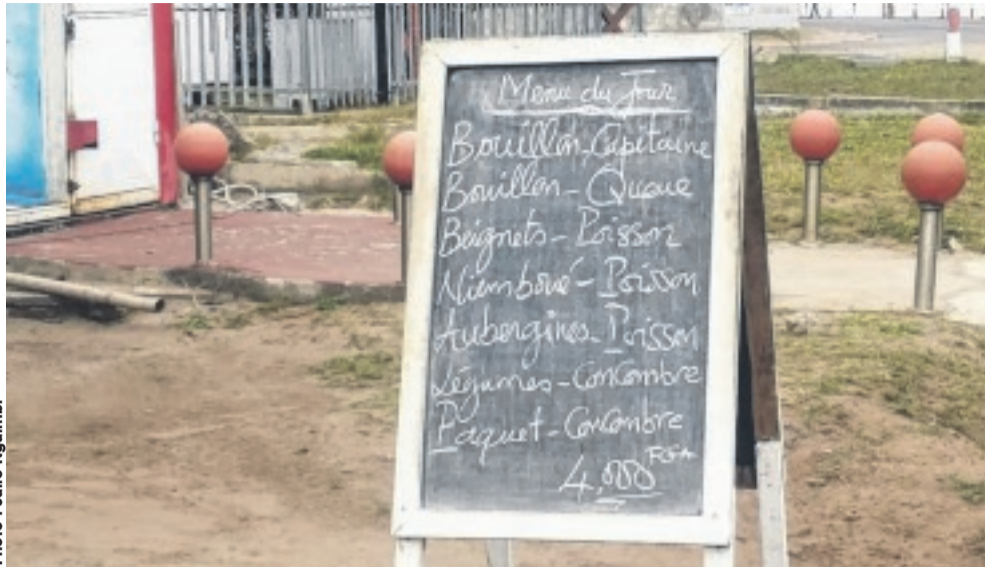 Menu du Jour
Bouillon-Capitaine
Bouillon-Queue
Beignets-Poisson
Niemboué-Poisson
Aubergines-Poisson
Légumes-Concombre
Paquet-Concombre
4,000 FCFA